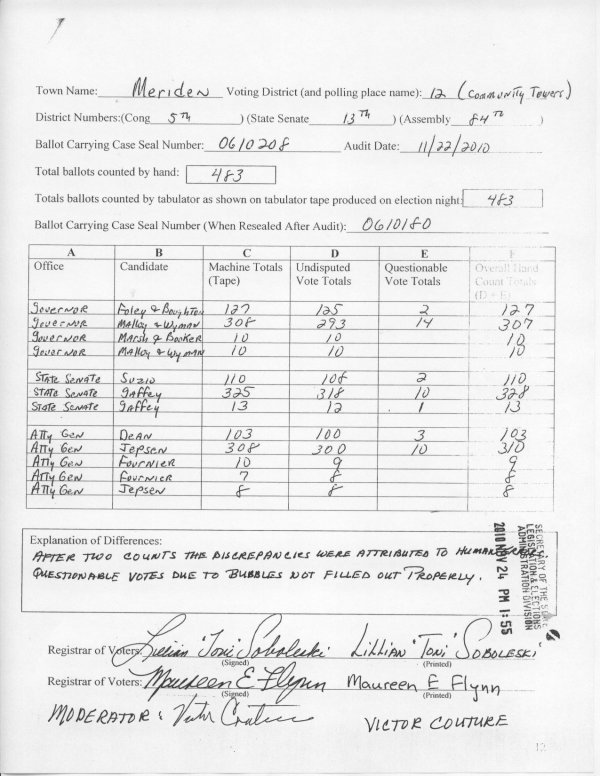 Town Name: Meriden Voting District (and polling place name): 12 (Community Towers)
District Numbers:(Cong 5TH ) (State Senate 13TH ) (Assembly 84TH )
Ballot Carrying Case Seal Number: 0610208 Audit Date: 11/22/2010
Total ballots counted by hand: 483
Totals ballots counted by tabulator as shown on tabulator tape produced on election night: 483
Ballot Carrying Case Seal Number (When Resealed After Audit): 0610180
A B C D E F
Office Candidate Machine Totals (Tape) Undisputed Vote Totals Questionable Vote Totals Overall Hand Count Totals (D + E)
Governor Foley & Boughton 127 125 2 127
Governor Malloy & Wyman 308 293 14 307
Governor Marsh & Booker 10 10 10
Governor Malloy & Wyman 10 10 10
State Senate Suzio 110 108 2 110
State Senate Gaffey 325 318 10 328
State Senate Gaffey 13 12 1 13
Atty Gen Dean 103 100 3 103
Atty Gen Jepsen 308 300 10 310
Atty Gen Fournier 10 9 9
Atty Gen Fournier 7 8 8
Atty Gen Jepsen 8 8 8
Explanation of Differences:
After two counts the discrepancies were attributed to human error.
Questionable votes due to bubbles not filled out properly.
SECRETARY OF THE STATE
LEGISLATION & ELECTIONS
ADMINISTRATION DIVISION
2010 NOV 24 PM 1:55
Registrar of Voters: Lillian "Toni" Soboleski Lillian "Toni" Soboleski
(Signed) (Printed)
Registrar of Voters: Maureen E Flynn Maureen E Flynn
(Signed) (Printed)
Moderator: Victor Couture Victor Couture
12